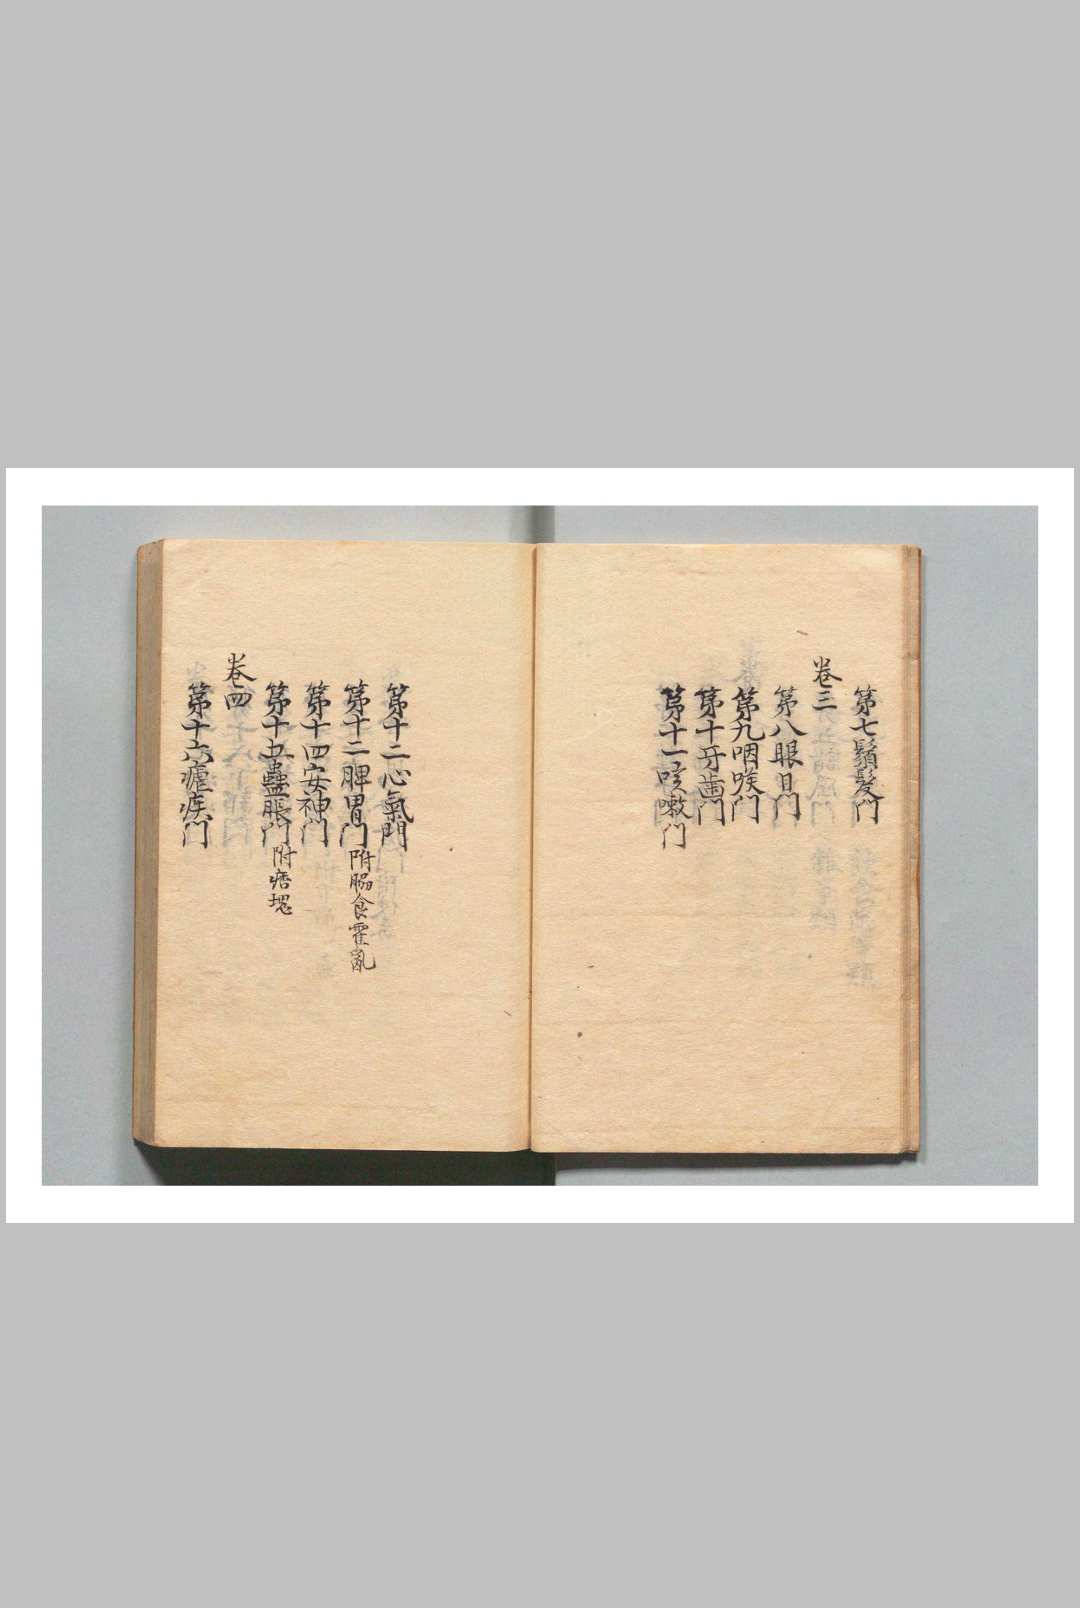 第七鬚髮门
卷三
第八眼目门
第九咽喉门
第十牙齒门
第十一咳嗽门
第十二心氣門
第十二脾胃门 附脇食霍亂
第十四安神门
第十五蠱脹门 附痞塊
卷四
第十六瘧疾门